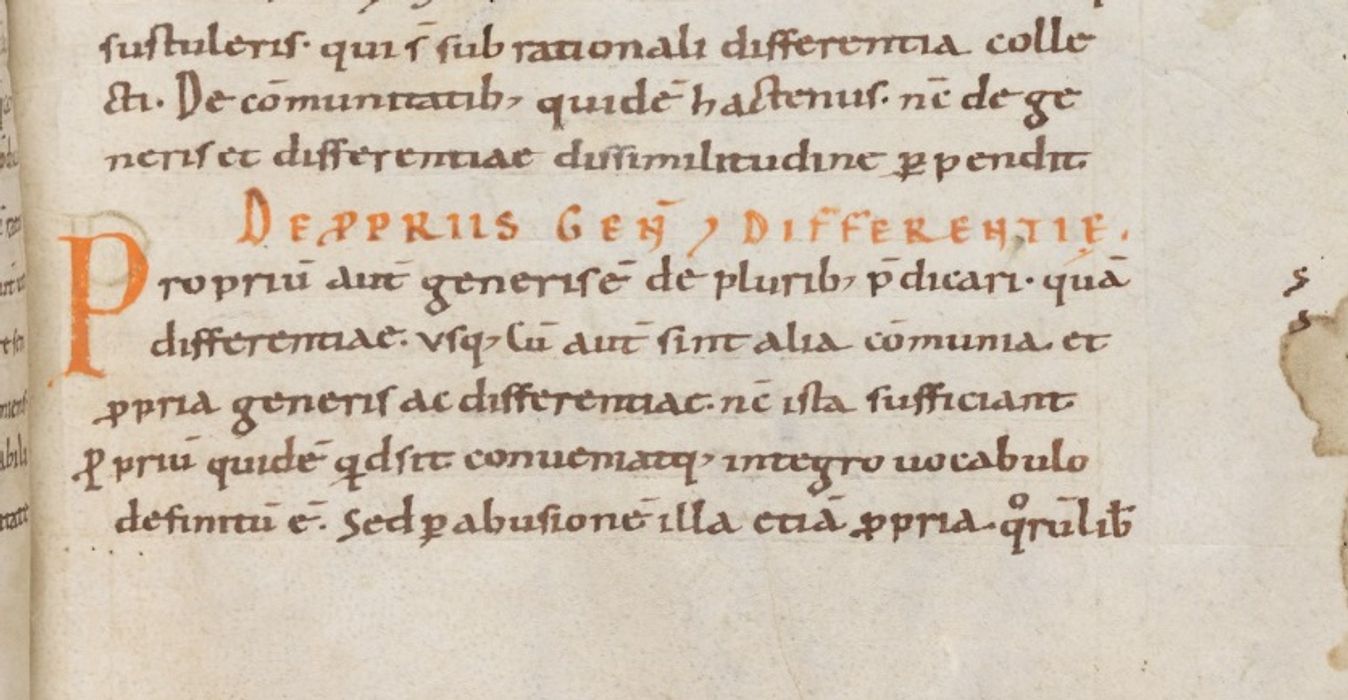 sustuleris· qui s̄ sub rationali differentia colle
cti. De cōmunitatib; quidē hactenus· nc̄ de ge
neris et differentiae dissimilitudine ꝑpendit
DE ꝓPRIIS GEN̄ ; DIFFERENTIĘ.
Propriū aut̄ generis ē de plurib; p̄dicari· quā
differentiae· usq; Cū aut̄ sint alia cōmunia. et
ꝓpria generis ac differentiae· nc̄ ista sufficiant
ꝓpriū quidē qd sit conueniatq; integro uocabulo
definitū ē. Sed ꝑ abusionē illa etiā ꝓpria· qͦrūlib̄
s
s